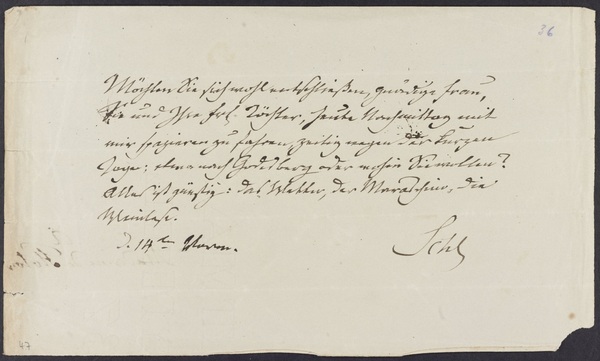 36
Möchten Sie sich wohl entschließen, gnädige Frau,
Sie und Ihre Frl. Töchter, heute Nachmittag mit
mir spazieren zu fahren, zeitig wegen der kurzen
Tage; etwa nach Godesberg oder wohin Sie wollen?
Alles ist günstig: das Wetter, der Mondschein, die
Weinlese.
d. 14ten Novem.
Schl
47